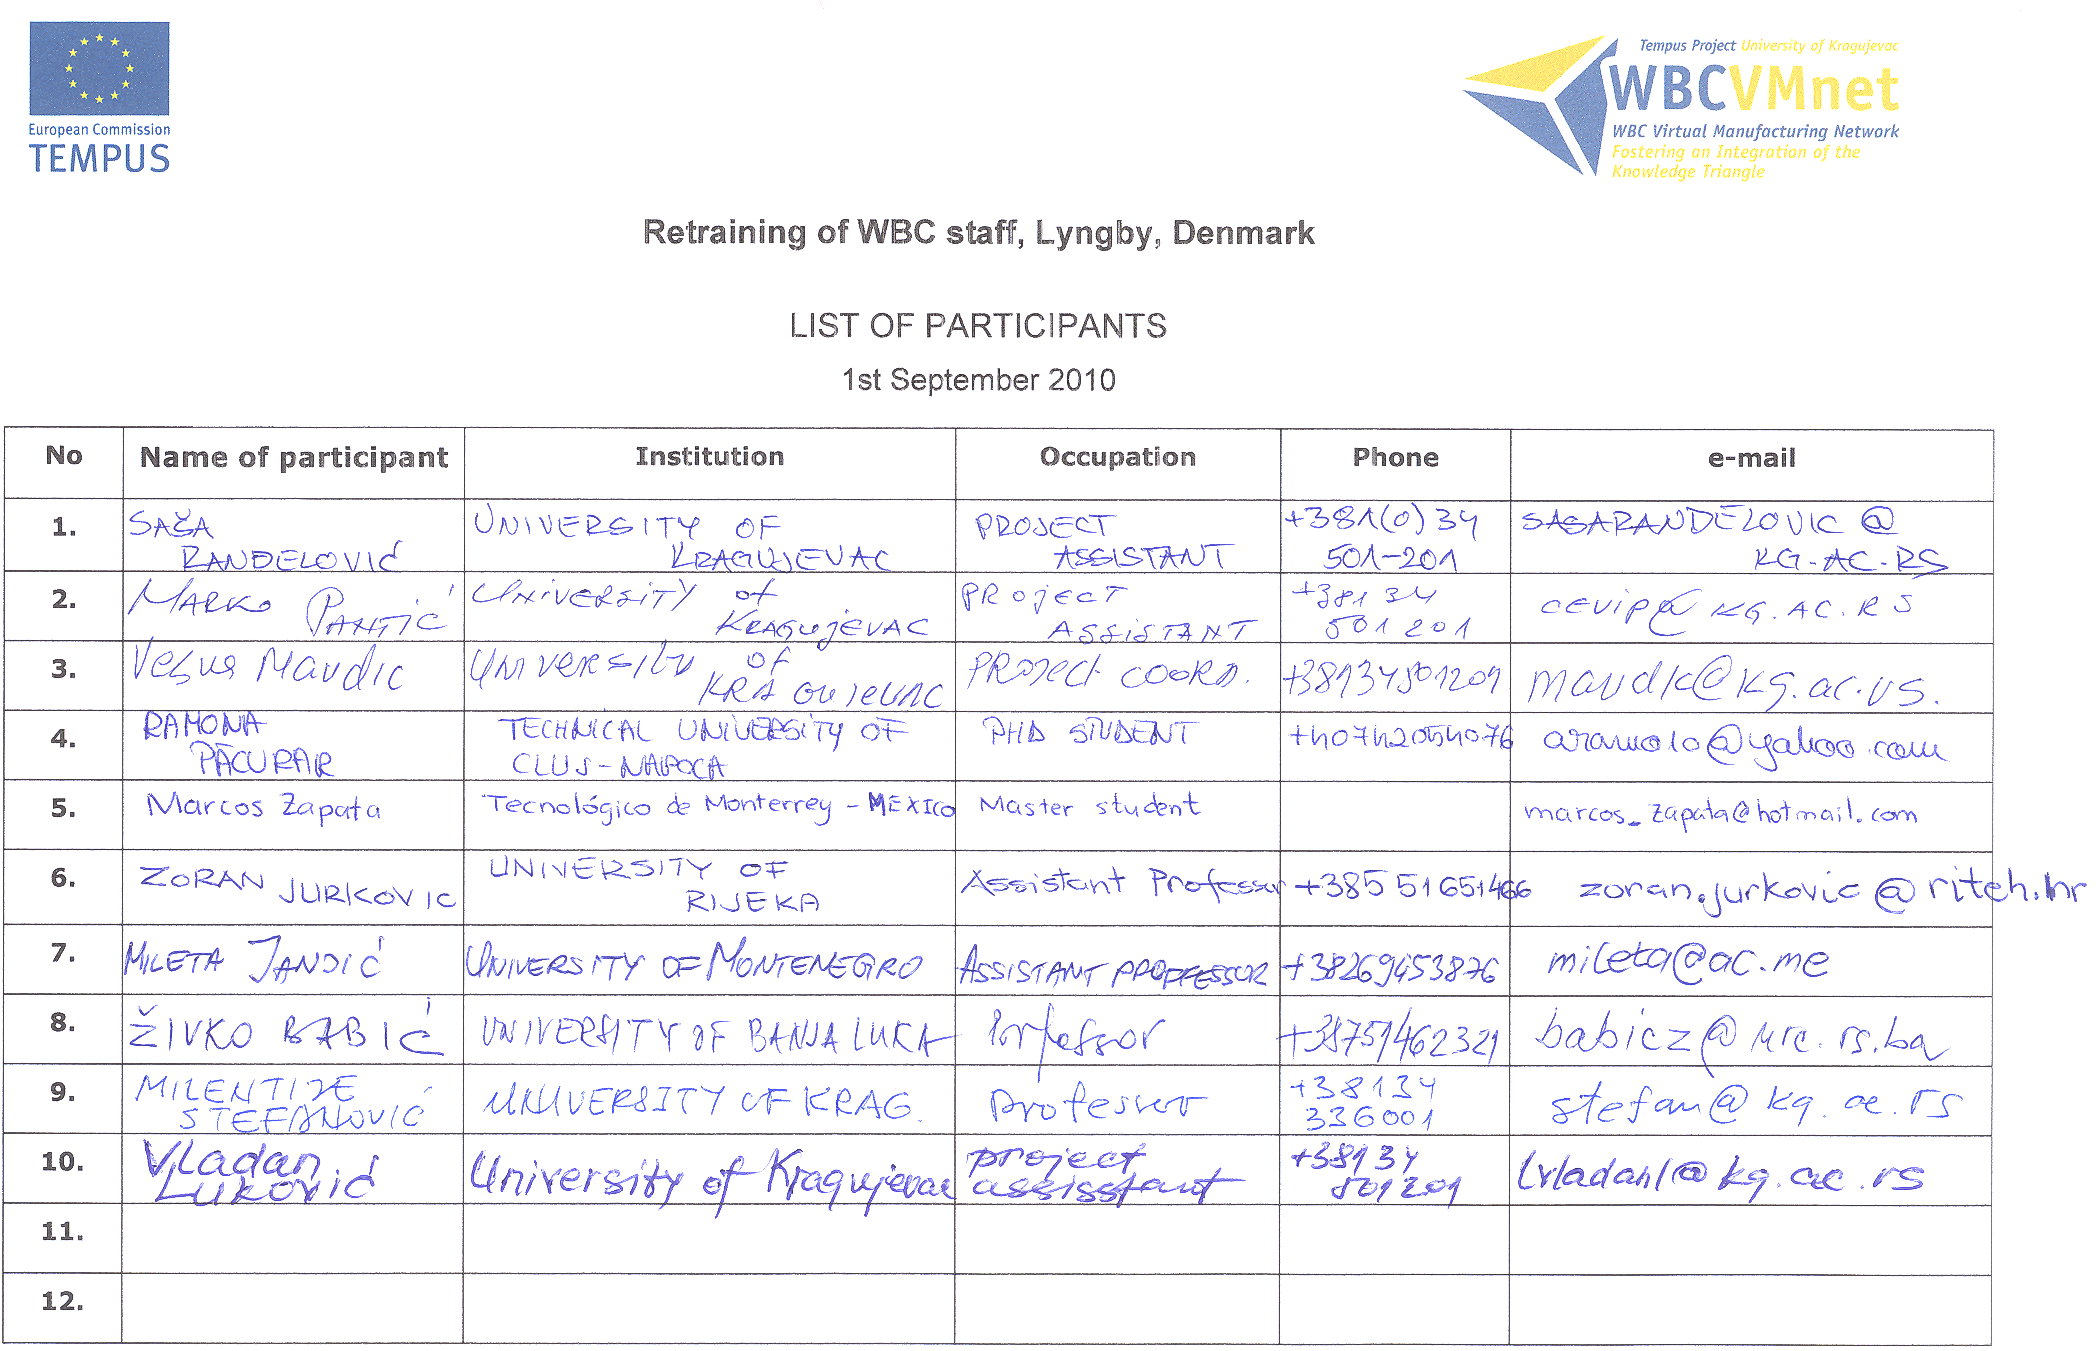 Tempus Project University of Kragujevac
WBCVMnet
WBC Virtual Manufacturing Network
Fostering an Integration of the
Knowledge Triangle
European Commission
TEMPUS
Retraining of WBC staff, Lyngby, Denmark
LIST OF PARTICIPANTS
1st September 2010
No Name of participant Institution Occupation Phone e-mail
1. SAŠA RANĐELOVIĆ UNIVERSITY OF KRAGUJEVAC PROJECT ASSISTANT +381(0)34 501-201 SASARANDELOVIC@KG.AC.RS
2. MARKO PANTIĆ UNIVERSITY of KRAGUJEVAC PROJECT ASSISTANT +381 34 501 201 cevip@KG.AC.RS
3. Vesna Mandic UNIVERSITY of KRAGUJEVAC PROJECT COORD. +38134501201 mandic@kg.ac.rs.
4. RAMONA PĂCURAR TECHNICAL UNIVERSITY OF CLUJ-NAPOCA PHD STUDENT +40742054076 aramolo@yahoo.com
5. Marcos Zapata Tecnológico de Monterrey - MEXICO Master student marcos_zapata@hotmail.com
6. ZORAN JURKOVIC UNIVERSITY OF RIJEKA Assistant Professor +385 51651466 zoran.jurkovic@riteh.hr
7. MILETA JANJIĆ UNIVERSITY OF MONTENEGRO ASSISTANT PROFFESSOR +38269453876 mileta@ac.me
8. ŽIVKO BABIĆ UNIVERSITY OF BANJA LUKA Professor +38751462321 babicz@urc.rs.ba
9. MILENTIJE STEFANOVIĆ UNIVERSITY OF KRAG. Professor +38134 336001 stefan@kg.ac.rs
10. Vladan Luković University of Kragujevac project assisstant +38134 501201 lvladanl@kg.ac.rs
11.
12.